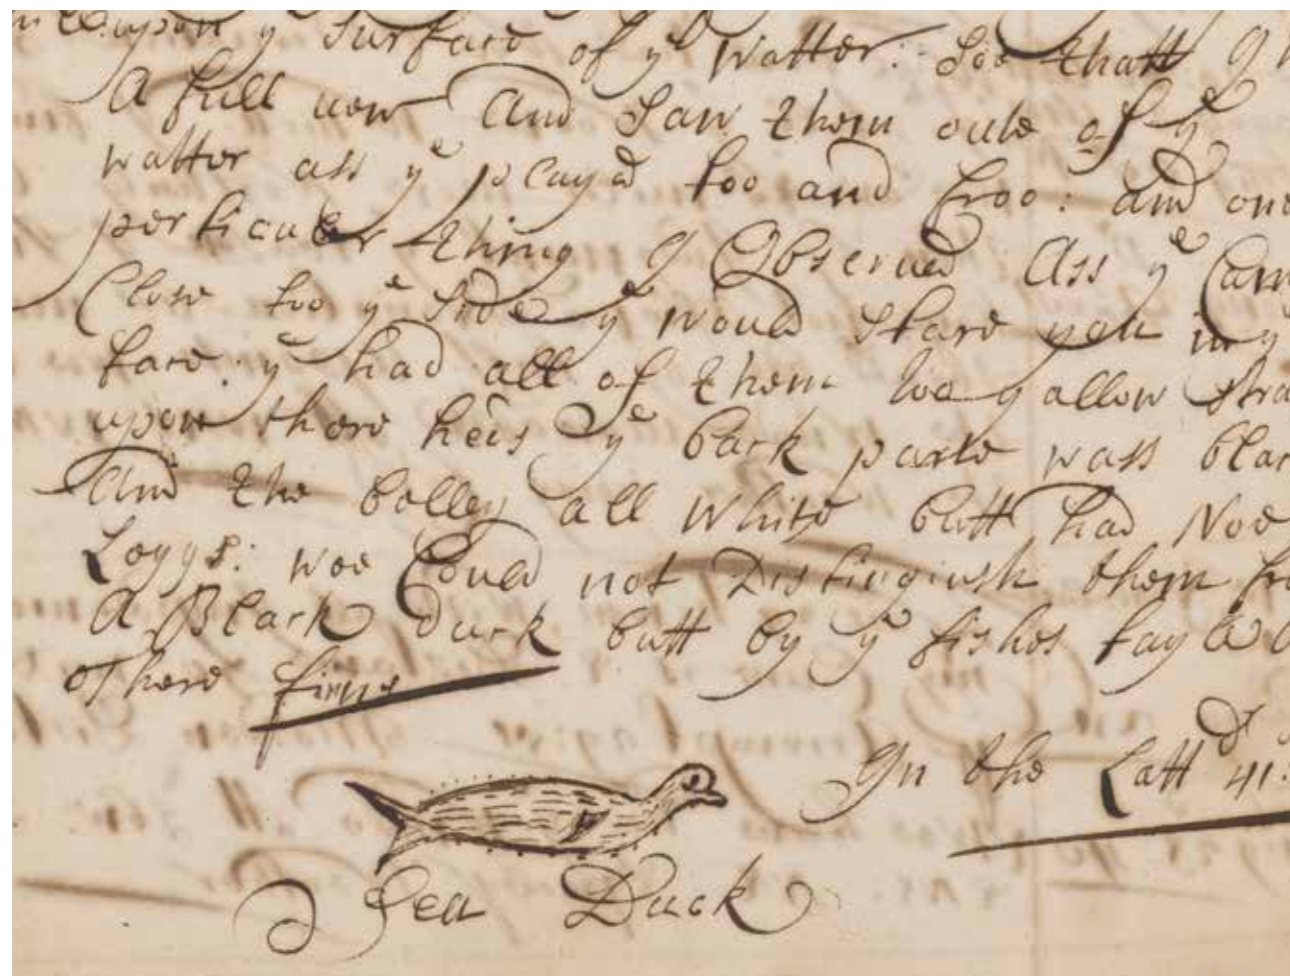 upon yᵉ Surface of yᵉ watter: Soe thatt I
A full vew And Saw them oute of yᵉ
watter ass yᵉ playd too and froo: and one
perticuler thing I Observed Ass yᵉ Cam
Close too yᵉ Side yᵉ would stare you in yᵉ
face: yᵉ had all of them yallow
upon there heds yᵉ back parte wass blac
And the belley all white butt had Noe
Leggs: wee Could not Distinguish them fro
A Black duck butt by yᵉ fishes tayle
othere finns
In the Lattᵈ 41:
Sea Duck